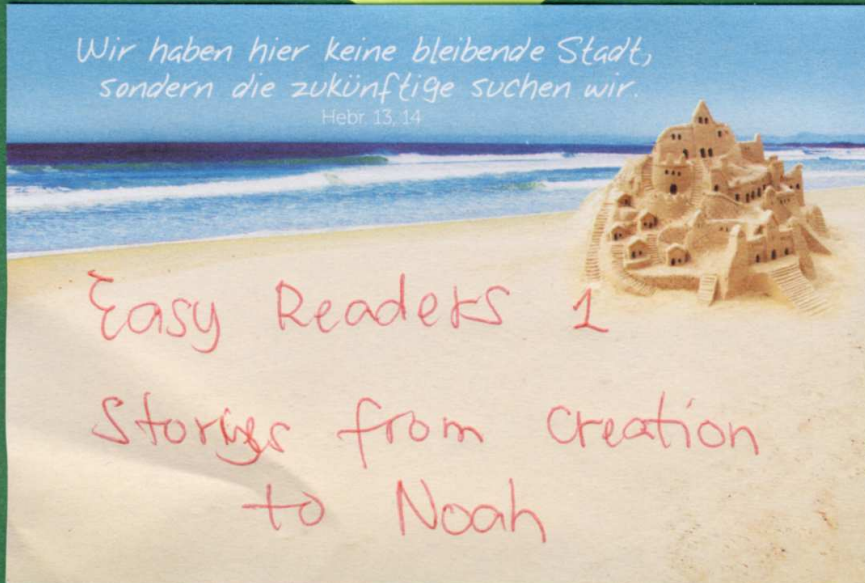 Wir haben hier keine bleibende Stadt,
sondern die zukünftige suchen wir.
Hebr. 13, 14
Easy Readers 1
Stories from Creation
to Noah